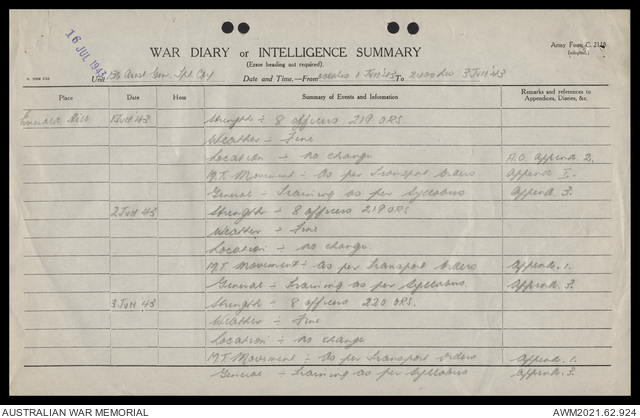 16 JUL 1943
WAR DIARY or INTELLIGENCE SUMMARY
(Erase heading not required).
Army Form C. 2118
(adapted.)
Unit 136 Aust Gen. Tpt. Coy Date and Time.—From 1 JUN '43 To 3 JUN '43
Place Date Hour Summary of Events and Information Remarks and references to Appendices, Diaries, &c.
1 JUN '43 Strength ÷ 8 officers 219 ORS.
Weather ÷ Fine
Location ÷ no change A.O. Append 2.
M.T. Movement ÷ As per Transport Orders Append 1.
General ÷ Training as per Syllabus Append 3.
2 JUN 43 Strength ÷ 8 officers 219 ORS
Weather ÷ Fine
Location ÷ no change.
M.T. Movement ÷ as per Transport Orders Append. 1.
General ÷ Training as per Syllabus. Append. 3.
3 JUN 43 Strength ÷ 8 officers 220 ORS.
Weather ÷ Fine
Location ÷ no change
M.T. Movement ÷ As per Transport orders Append. 1.
General ÷ Training as per Syllabus Append. 3.
AUSTRALIAN WAR MEMORIAL AWM2021.62.924